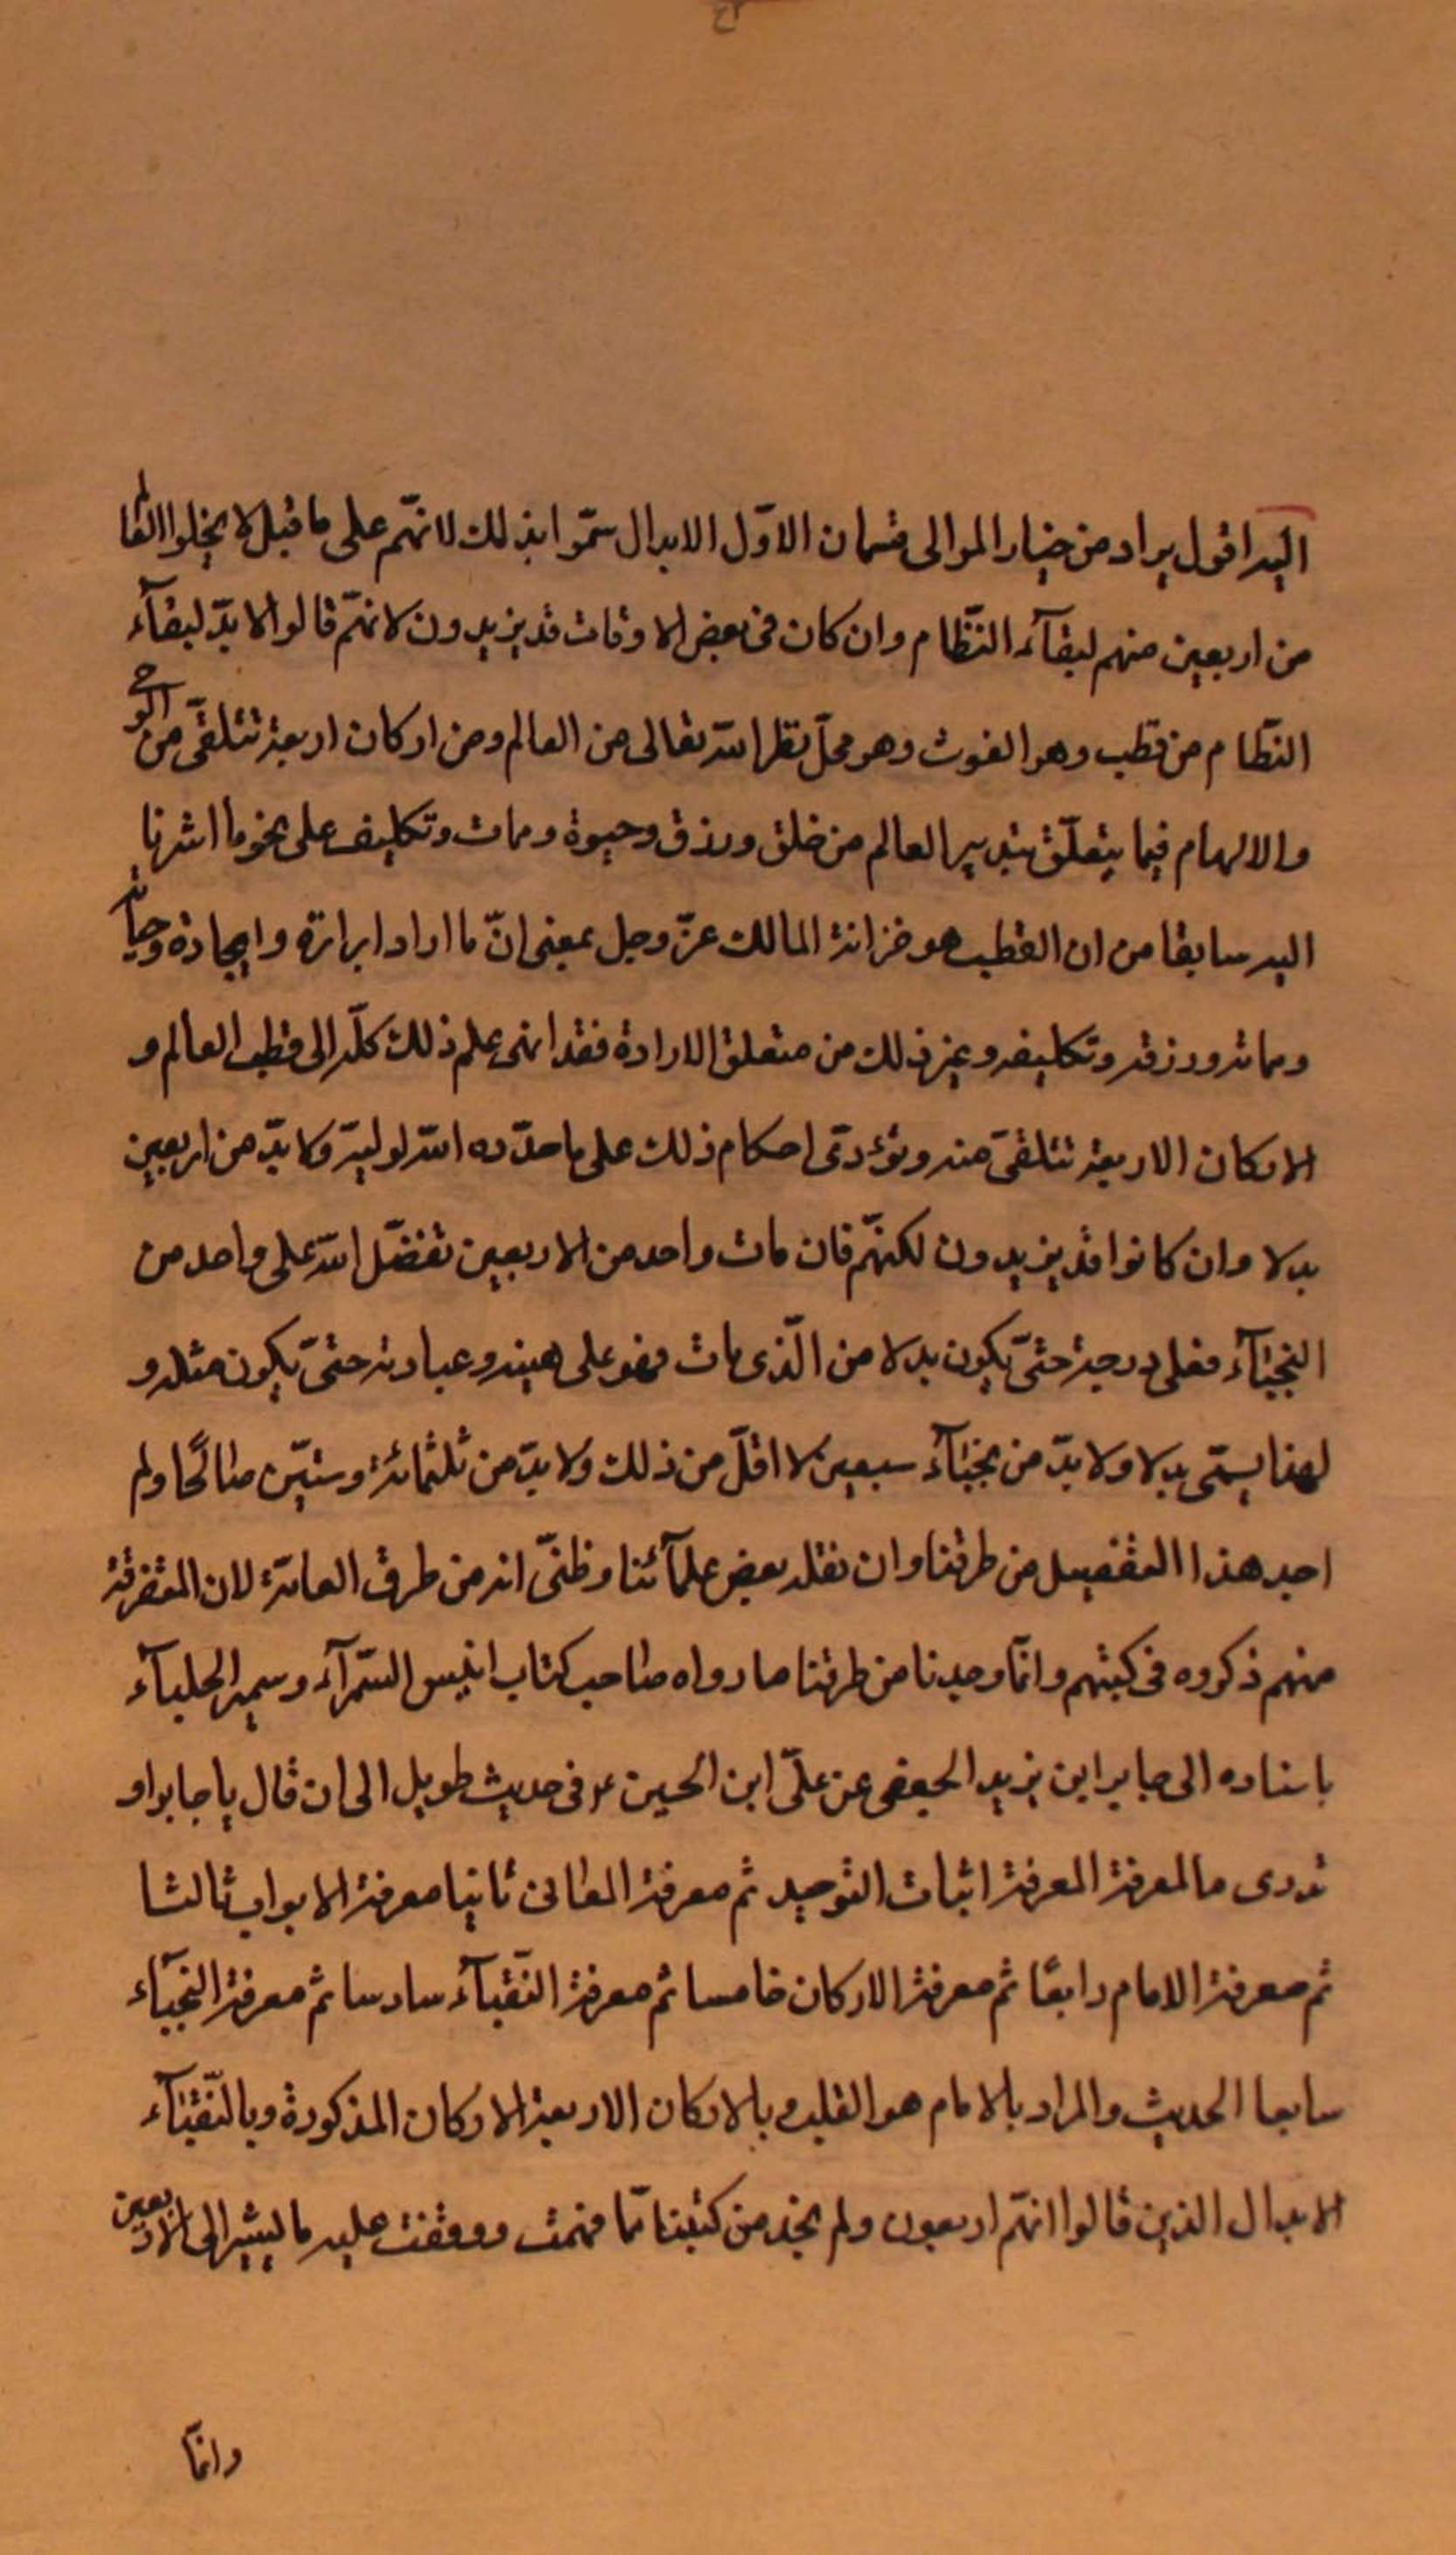 اليه اقول يراد من خيار الموالى قسمان الاوّل الابدال سمّوا بذلك لانهّم على ما قيل لا يخلوا العالم
من اربعين منهم لبقآء النّظام وان كان فى بعض الاوقات قد يزيدون لانهّم قالوا لا بدّ لبقآء
النظّام من قطب وهو الغوث وهو محلّ نظر الله تعالى من العالم ومن اركان اربعة تتلقّى من الوحى
والالهام فيما يتعلّق بتدبير العالم من خلق ورزق وحيوة وممات وتكليف على نحو ما اشرنا
اليه سابقا من ان القطب هو خزانة المالك عزّ وجل بمعنى انّ ما اراد ابرازه وايجاده وحياته
ومماته ورزقه وتكليفه وغير ذلك من متعلق الارادة فقد انهى علم ذلك كلّه الى قطب العالم و
الاركان الاربعة تتلقّى منه وتؤدّى احكام ذلك على ما حدّده الله لوليّه ولا بدّ من اربعين
بدلا وان كانوا قد يزيدون لكنهّم فان مات واحد من الاربعين تفضّل الله على واحد من
النجبآء فعلى درجته حتىّ يكون بدلا من الّذى مات فهو على هيئته وعبادته حتىّ يكون مثله و
لهذا يسمّى بدلا ولا بدّ من نجبآء سبعين لا اقلّ من ذلك ولا بدّ من ثلثمائة وستيّن صالحًا ولم
اجد هذا التفصيل من طرقنا وان نقله بعض علمآئنا وظنىّ انه من طرق العامّة لان المتفرقة
منهم ذكروه فى كتبهم وانمّا وجدنا من طرقنا ما رواه صاحب كتاب انيس السّمرآء وسمير الجلسآء
باسناده الى جابر ابن يزيد الجعفى عن علىّ ابن الحسين ع فى حديث طويل الى ان قال يا جابر او
تدرى ما المعرفة المعرفة اثبات التوحيد ثم معرفة المعانى ثانيا معرفة الابواب ثالثا
ثم معرفة الامام رابعًا ثم معرفة الاركان خامسا ثم معرفة النّقبآء سادسا ثم معرفة النجبّآء
سابعا الحديث والمراد بالامام هو القلب وبالاركان الاربعة الاركان المذكورة وبالنّقبآء
الابدال الذين قالوا انهّم اربعون ولم نجد من كتبنا ممّا فهمت ووقفت عليه ما يشير الى الاربعين
وانمّا